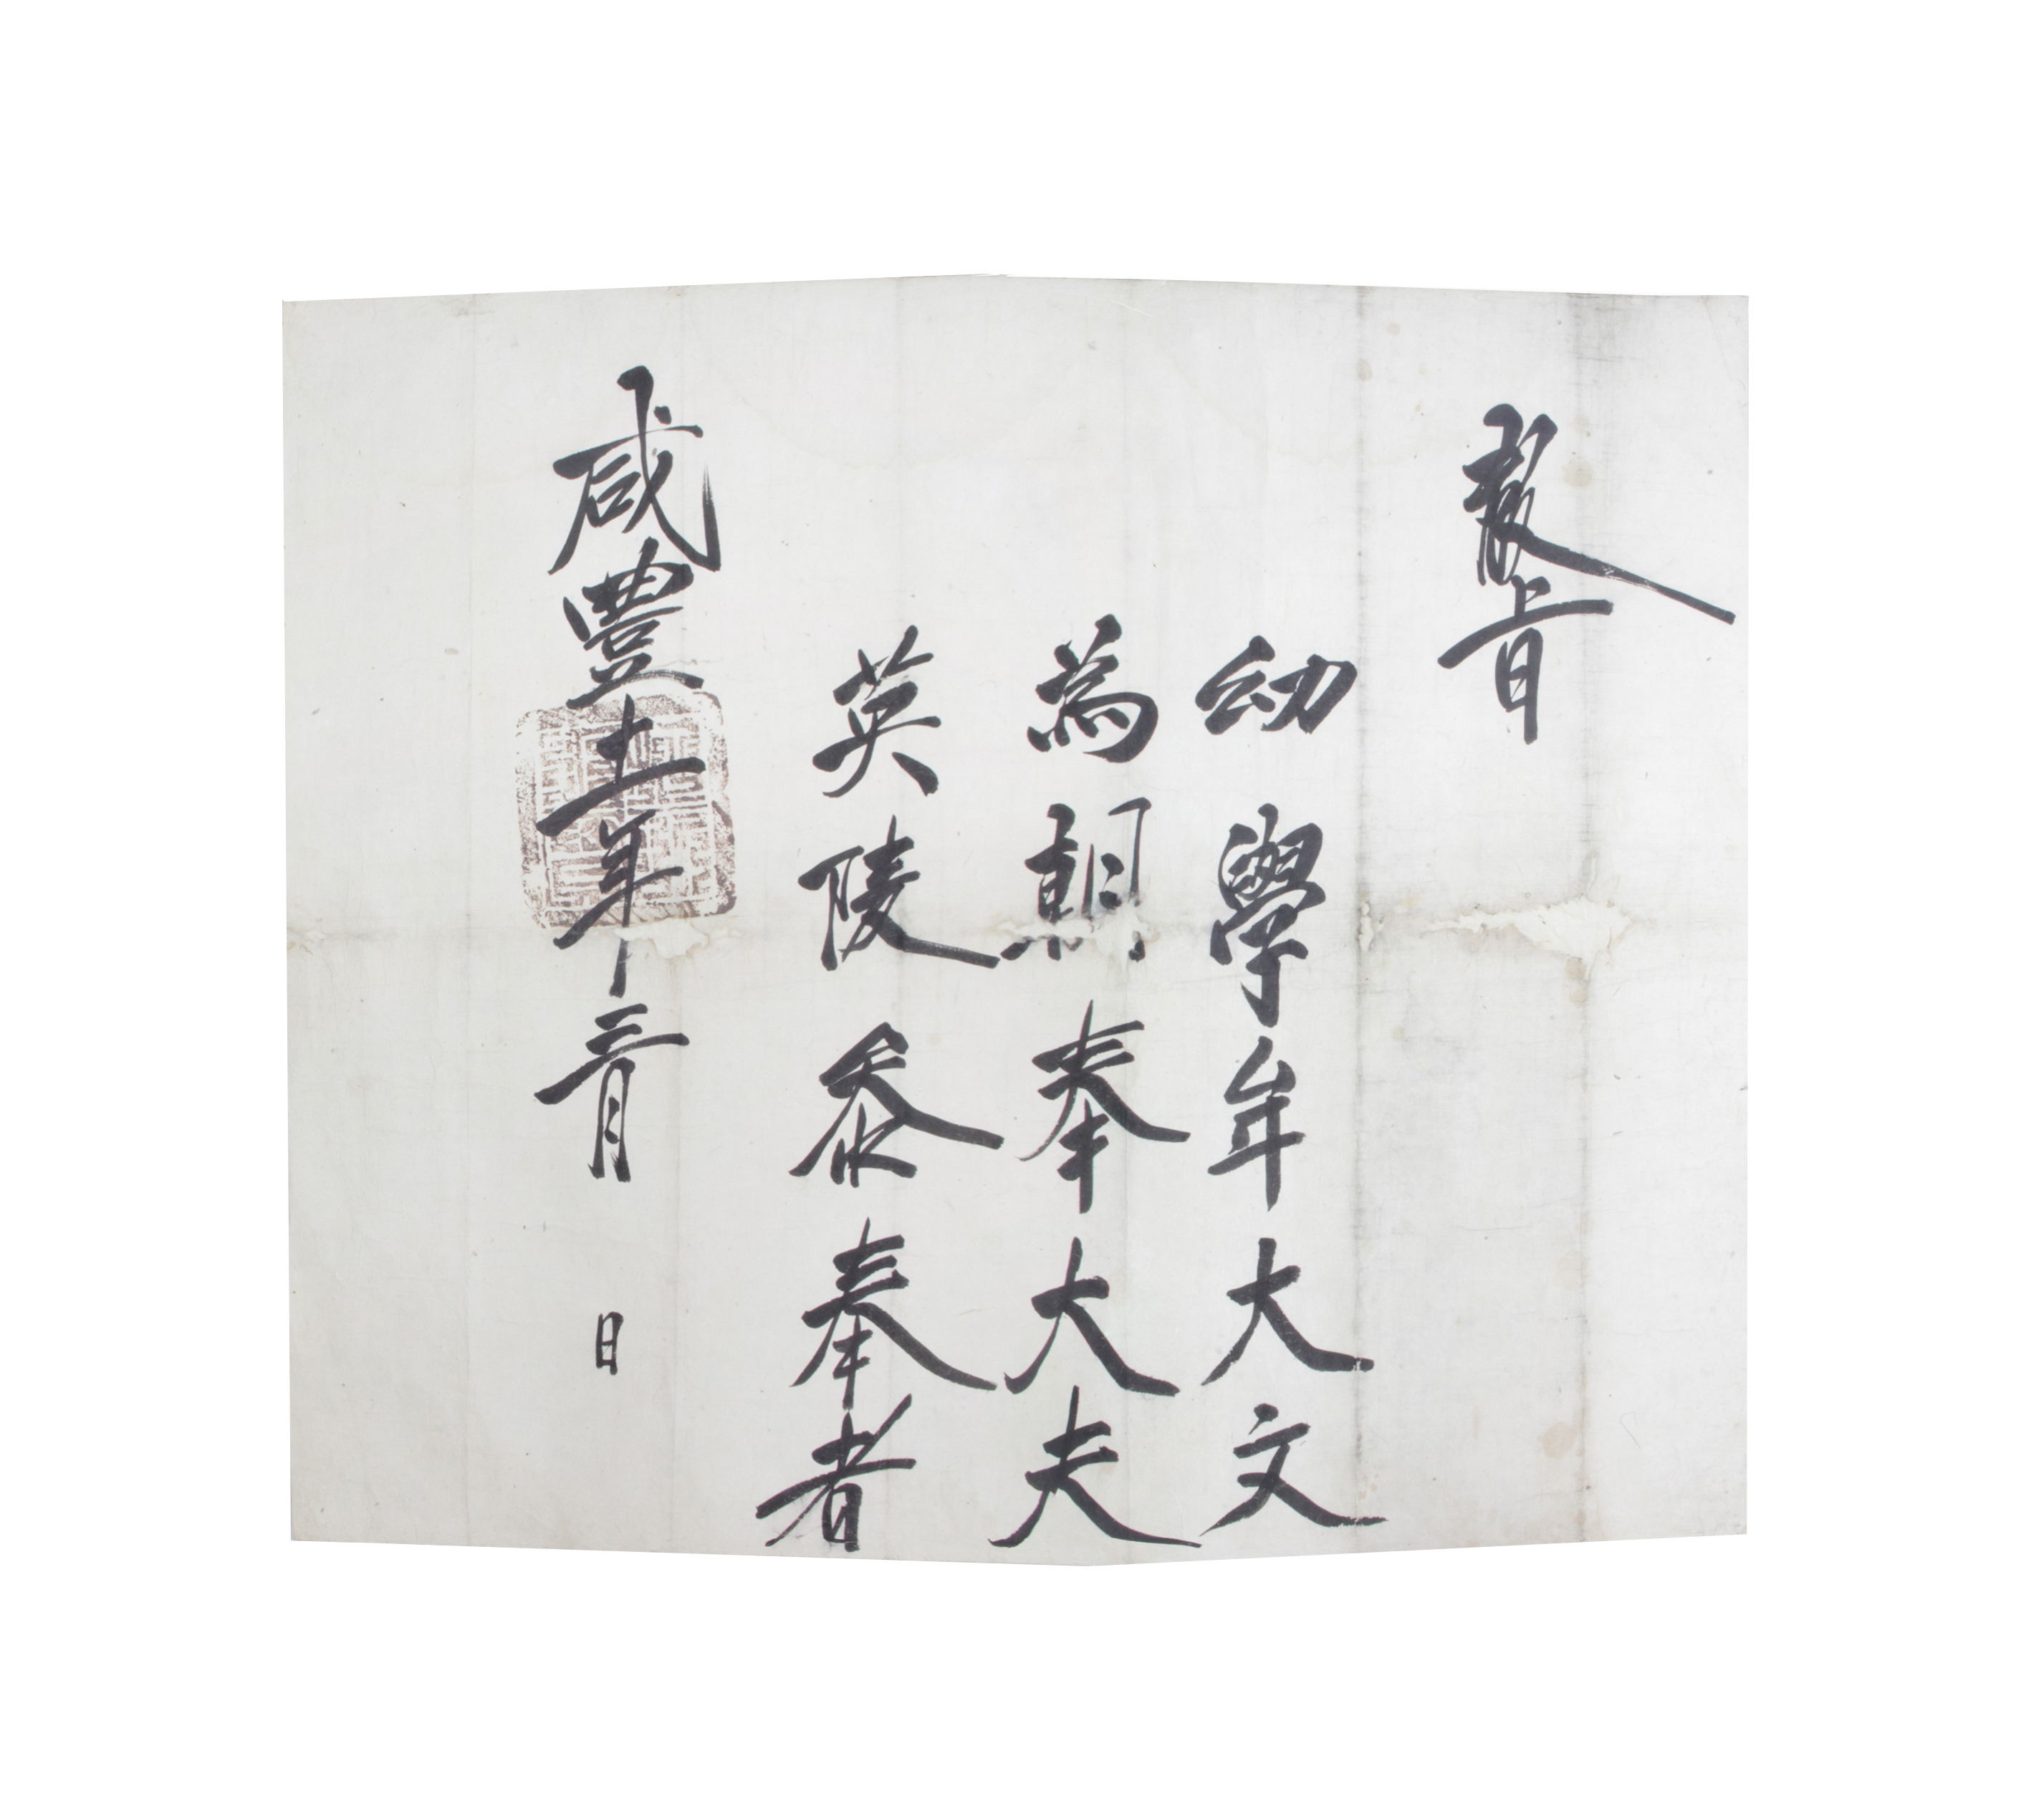 敎旨
幼學牟大文
為朝奉大夫
英陵叅奉者
咸豐十一年三月　日